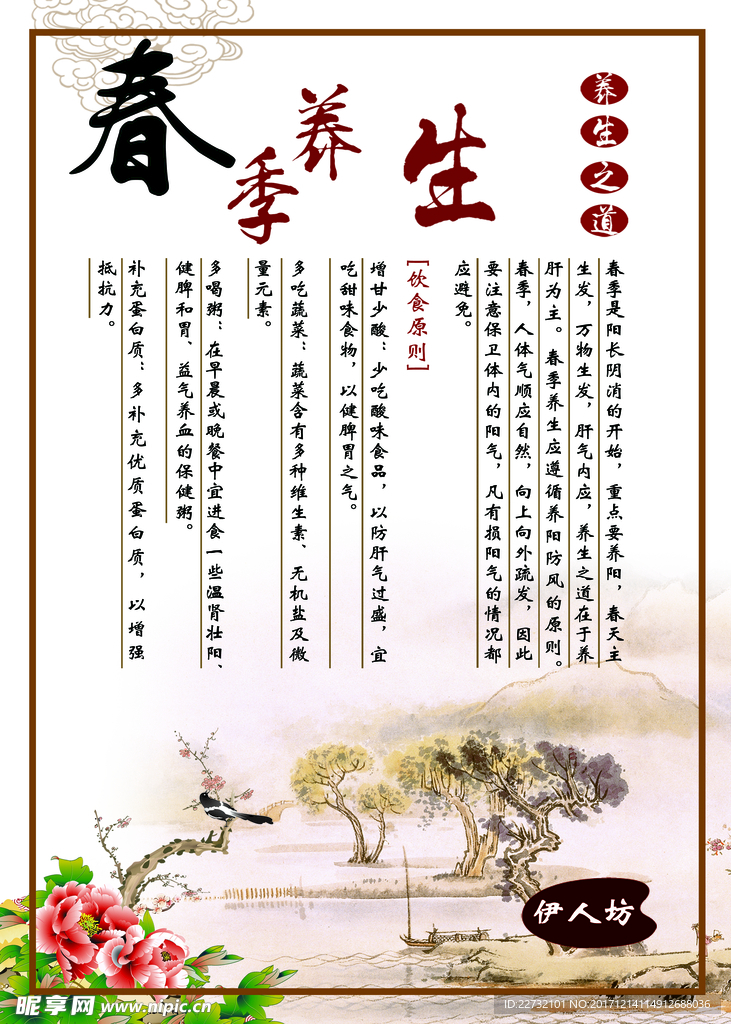 春季养生
养生之道
春季是阳长阴消的开始，重点要养阳，春天主
生发，万物生发，肝气内应，养生之道在于养
肝为主。春季养生应遵循养阳防风的原则。
春季，人体气顺应自然，向上向外疏发，因此
要注意保卫体内的阳气，凡有损阳气的情况都
应避免。
[饮食原则]
增甘少酸：少吃酸味食品，以防肝气过盛，宜
吃甜味食物，以健脾胃之气。
多吃蔬菜：蔬菜含有多种维生素、无机盐及微
量元素。
多喝粥：在早晨或晚餐中宜进食一些温肾壮阳、
健脾和胃、益气养血的保健粥。
补充蛋白质：多补充优质蛋白质，以增强
抵抗力。
伊人坊
昵享网 www.nipic.cn
ID:22732101 NO:20171214114912688036